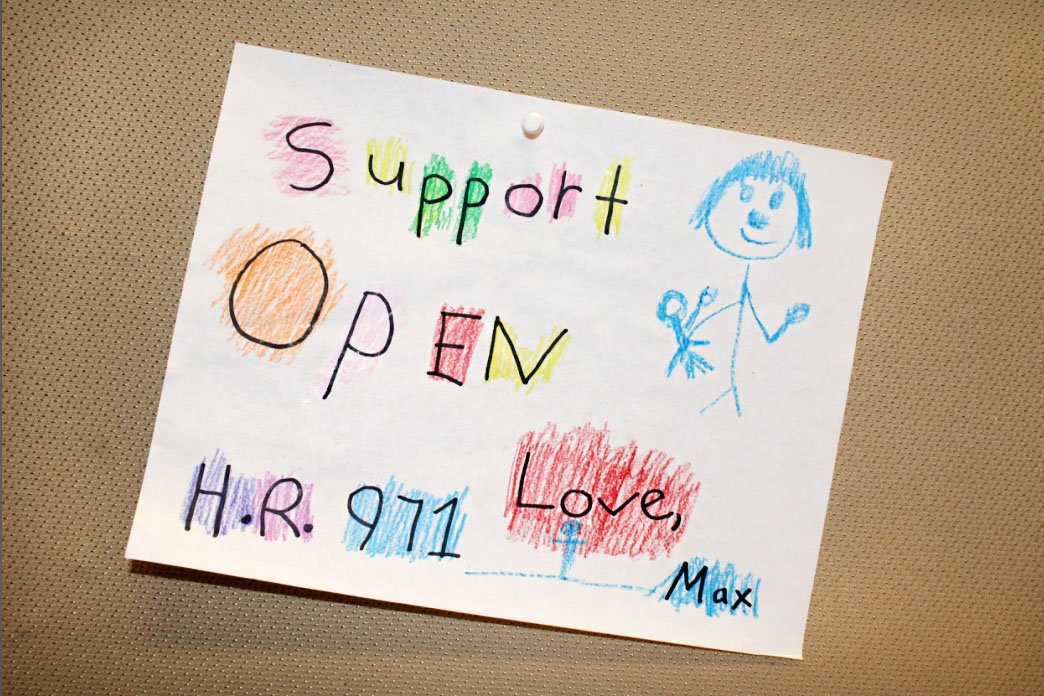 Support
OPEN
H.R. 971
Love,
Max